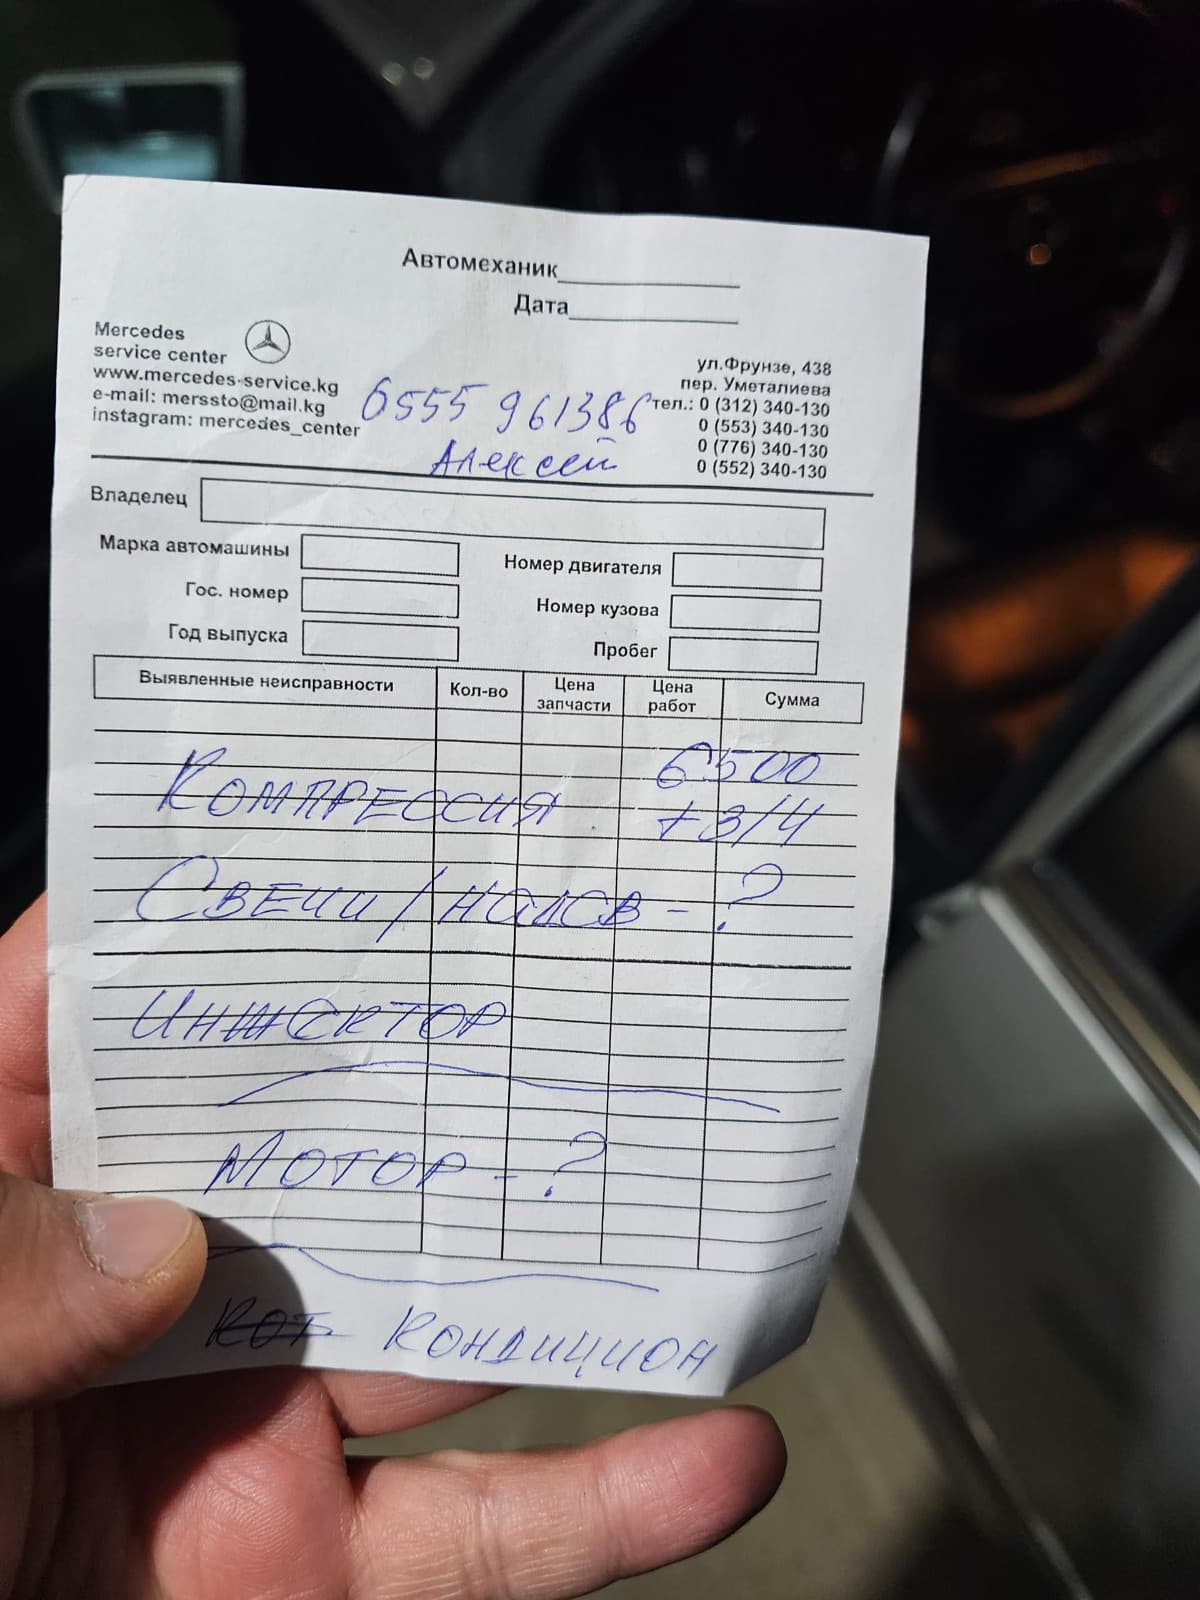 Автомеханик
Дата
Mercedes
service center
www.mercedes-service.kg
e-mail: merssto@mail.kg
instagram: mercedes_center
6555 961386
Алексей
ул.Фрунзе, 438
пер. Уметалиева
тел.: 0 (312) 340-130
0 (553) 340-130
0 (776) 340-130
0 (552) 340-130
Владелец
Марка автомашины
Номер двигателя
Гос. номер
Номер кузова
Год выпуска
Пробег
Выявленные неисправности Кол-во Цена запчасти Цена работ Сумма
6500
Компрессия. +3/4
Свечи/ - ?
Инжектор
Мотор - ?
Кондицион